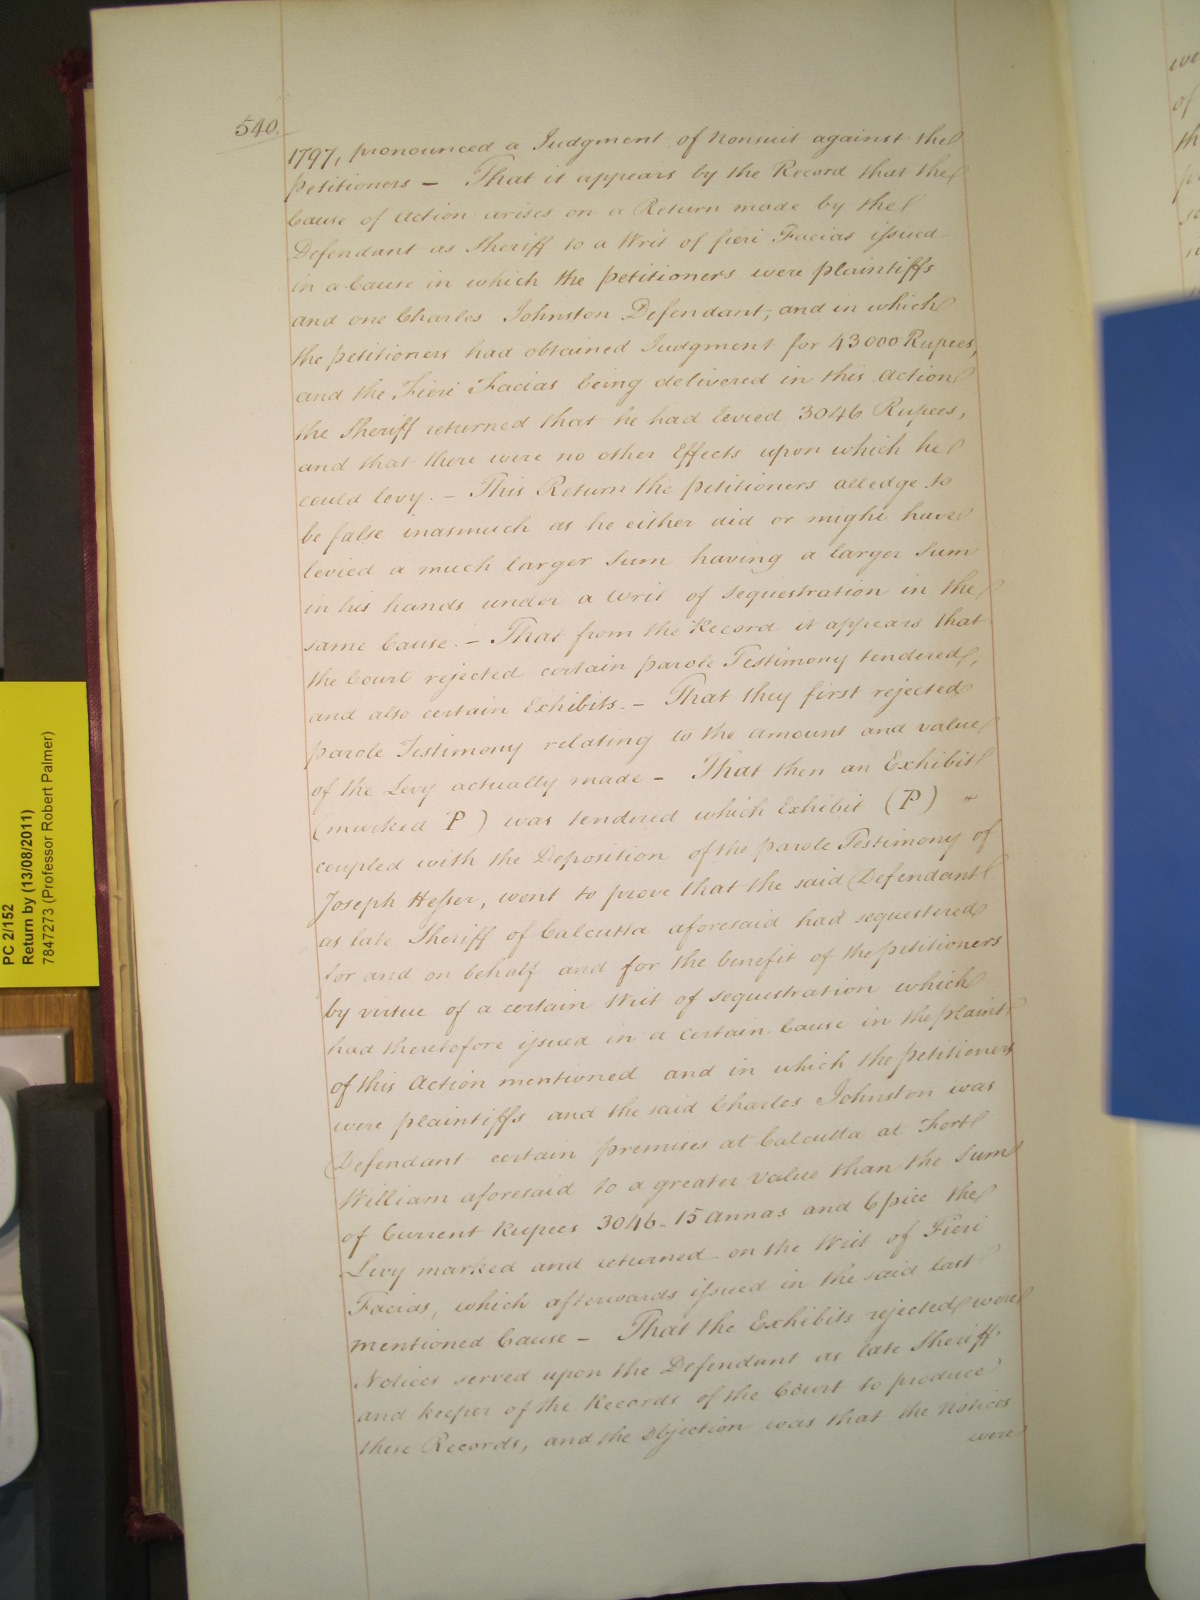 540.
1797, pronounced a Judgment of Nonsuit against the
Petitioners — That it appears by the Record that the
Cause of Action arises on a Return made by the
Defendant as Sheriff to a Writ of fieri Facias issued
in a Cause in which the petitioners were plaintiffs
and one Charles Johnston Defendant, and in which
the petitioners had obtained Judgment for 43000 Rupees,
and the Fieri Facias being delivered in this Action
the Sheriff returned that he had levied 3046 Rupees,
and that there were no other Effects upon which he
could levy. — This Return the petitioners alledge to
be false inasmuch as he either did or might have
levied a much larger Sum having a larger Sum
in his hands under a Writ of Sequestration in the
same Cause. — That from the Record it appears that
the Court rejected certain parole Testimony tendered,
and also certain Exhibits. — That they first rejected
parole Testimony relating to the amount and value
of the Levy actually made — That then an Exhibit
(marked P) was tendered which Exhibit (P)
coupled with the Deposition of the parole Testimony of
Joseph Hesser, went to prove that the said Defendant
as late Sheriff of Calcutta aforesaid had sequestered
for and on behalf and for the benefit of the petitioners
by virtue of a certain Writ of sequestration which
had theretofore issued in a certain Cause in the plaint
of this Action mentioned and in which the petitioners
were plaintiffs and the said Charles Johnston was
Defendant certain premises at Calcutta at Fort
William aforesaid to a greater value than the Sum
of Current Rupees 3046-15 Annas and 6 pice the
Levy marked and returned on the Writ of Fieri
Facias, which afterwards issued in the said last
mentioned Cause — That the Exhibits rejected were
Notices served upon the Defendant as late Sheriff
and keeper of the Records of the Court to produce
these Records, and the objection was that the Notices
were
PC 2/152
Return by (13/08/2011)
7847273 (Professor Robert Palmer)